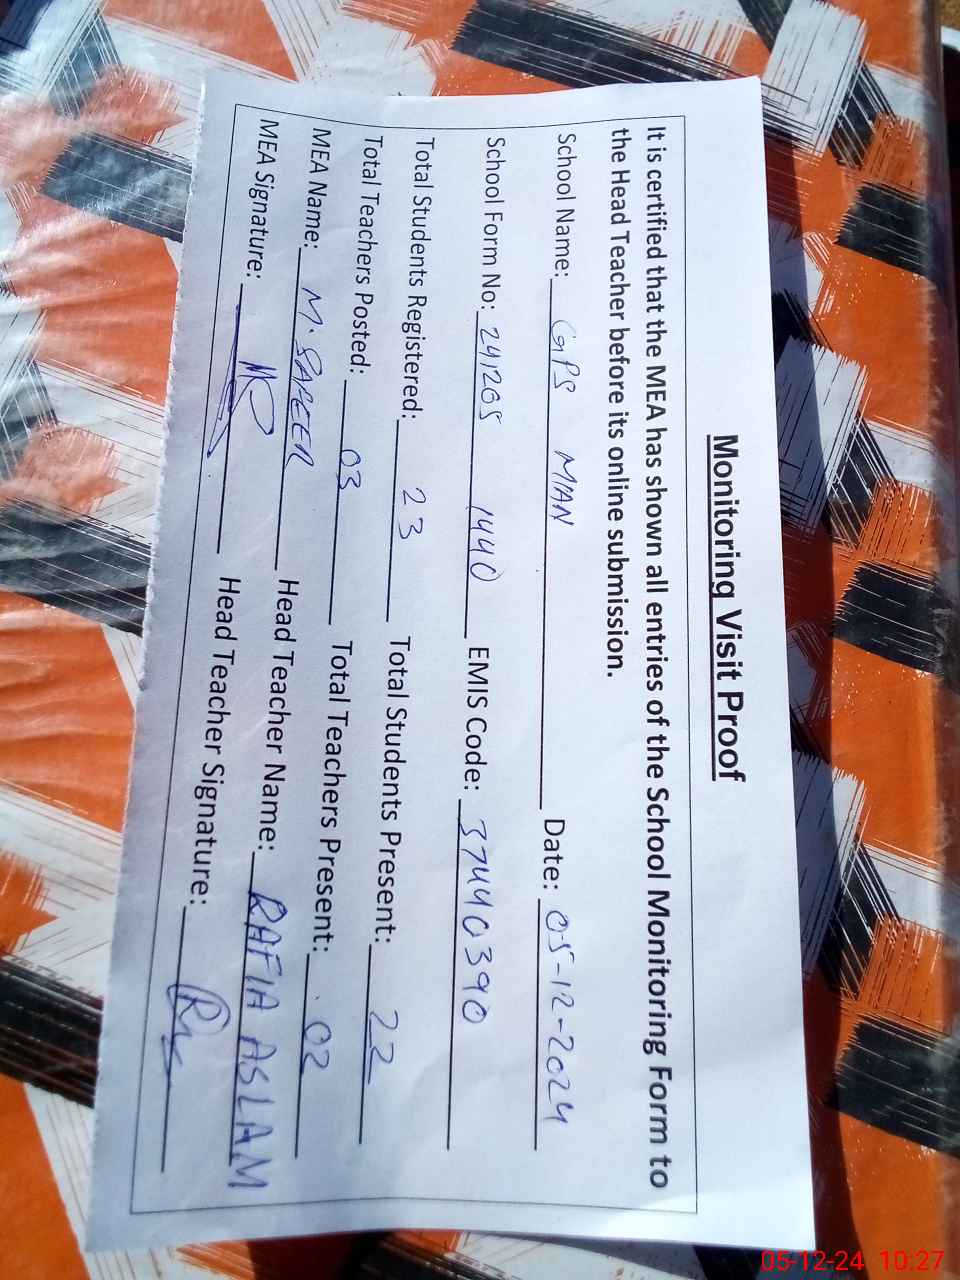 Monitoring Visit Proof
It is certified that the MEA has shown all entries of the School Monitoring Form to
the Head Teacher before its online submission.
School Name: GPS MIAN Date: 05-12-2024
School Form No: 241205 1440 EMIS Code: 37440390
Total Students Registered: 23 Total Students Present: 22
Total Teachers Posted: 03 Total Teachers Present: 02
MEA Name: M. SAFEER Head Teacher Name: RAFIA ASLAM
MEA Signature: Head Teacher Signature:
05-12-24 10:27